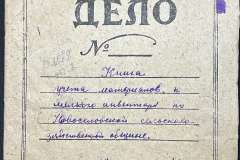 ДЕЛО
№
Книга
учета материалов и
мелкого инвентаря по
Новоселовской сельско-
хозяйственной общине.